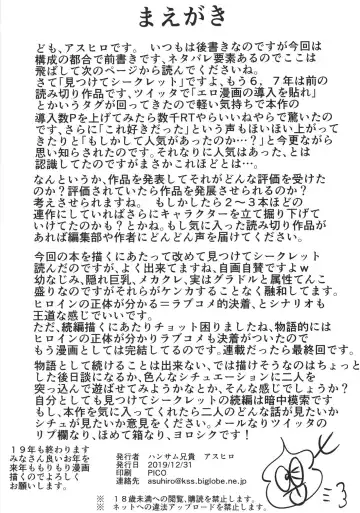 まえがき
ども、アスヒロです。 いつもは後書きなのですが今回は
構成の都合で前書きです、ネタバレ要素あるのでここは
飛ばして次のページから読んでくださいね。
さて「見つけてシークレット」ですよ、もう６，７年は前の
読み切り作品です、ツイッタで「エロ漫画の導入を貼れ」
とかいうタグが回ってきたので軽い気持ちで本作の
導入数Pを上げてみたら数千RTやらいいねやらで驚いた
のです、さらに「これ好きだった」という声もほいほい上がって
きたりと「もしかして人気があったのか…？」と今更ながら
思い知らされたのです。それなりに人気はあった、とは
認識してたのですがまさかこれほどとは…。
なんというか、作品を発表してそれがどんな評価を受けた
のか？評価されていたら作品を発展させられるのか？
考えさせられますね。 もしかしたら２～３本ほどの
連作にしていればさらにキャラクターを立て掘り下げて
いけてたのかも？とかね。もし気に入った読み切り作品が
あれば編集部や作者にどんどん声を届けてください。
今回の本を描くにあたって改めて見つけてシークレット
読んだのですが、よく出来てますね、自画自賛ですよｗ
幼なじみ、隠れ巨乳、メカクレ、実はグラドルと属性てんこ
盛りなのですがそれらがケンカすることなく融和してます。
ヒロインの正体が分かる＝ラブコメ的決着、とシナリオも
王道な感じでいいです。
ただ、続編描くにあたりチョット困りましたね、物語的には
ヒロインの正体が分かりラブコメも決着がついたので
もう漫画としては完結してるのです。連載だったら最終回です。
物語として続けることは出来ない、では描けそうなのはちょっと
した後日談になるか、色んなシチュエーションに二人を
突っ込んで遊ばせてみようかなとか、そんな感じでしょうか？
自分としても見つけてシークレットの続編は暗中模索です
もし、本作を気に入ってくれたら二人のどんな話が見たいか
シチュが見たいか意見をください。メールなりツイッタの
リプ欄なり、ほめて箱なり、ヨロシクです！
１９年も終わります
みなさん良いお年を
来年ももりもり漫画
描くのでよろしく
お願いします。
発行者 ハンサム兄貴 アスヒロ
発行日 2019/12/31
印刷 PICO
連絡先 asuhiro@kss.biglobe.ne.jp
※ １８歳未満への閲覧、購読を禁止します。
※ ネットへの違法アップロードを禁止します。